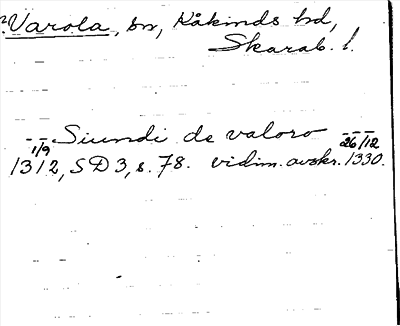 Varola, sn, Kåkinds hd,
Skarab. l.
--Siundi de valoro ---
1/9 26/12
1312, SD 3, s. 78. vidim. avskr. 1330.